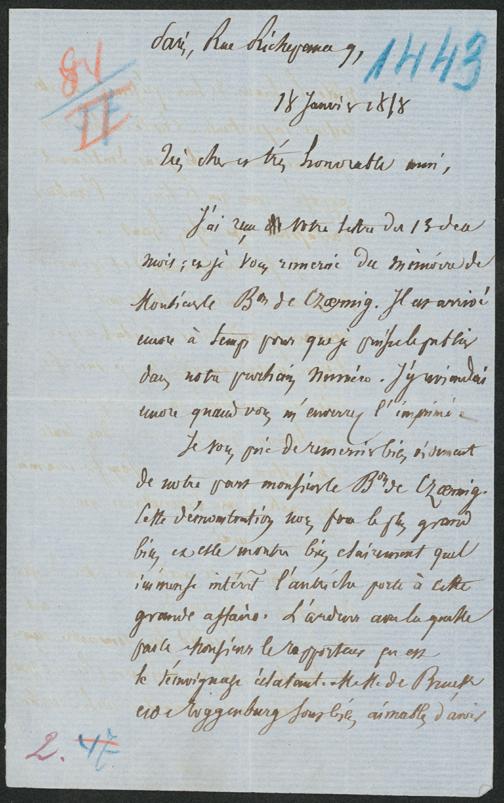 Paris, Rue Richepanse 9,
1443
84
II
77
18 Janvier 1858
Très cher et très honorable ami,
J'ai reçu votre lettre du 13 de ce
mois; et je vous remercie du mémoire de
Monsieur le Bon de Czœrnig. Il est arrivé
encore à temps pour que je puisse le publier
dans notre prochain numéro. J'y reviendrai
encore quand vous m'enverrez l'imprimé.
Je vous prie de remercier bien vivement
de notre part monsieur le Bon de Czœrnig.
Cette démonstration nous fera le plus grand
bien et elle montre bien clairement quel
immense intérêt l'Autriche porte à cette
grande affaire. L'ardeur avec laquelle
parle Monsieur le rapporteur en est
le témoignage éclatant. MM. de Bruck
et de Toggenburg sont bien aimables d'avoir
2. 47